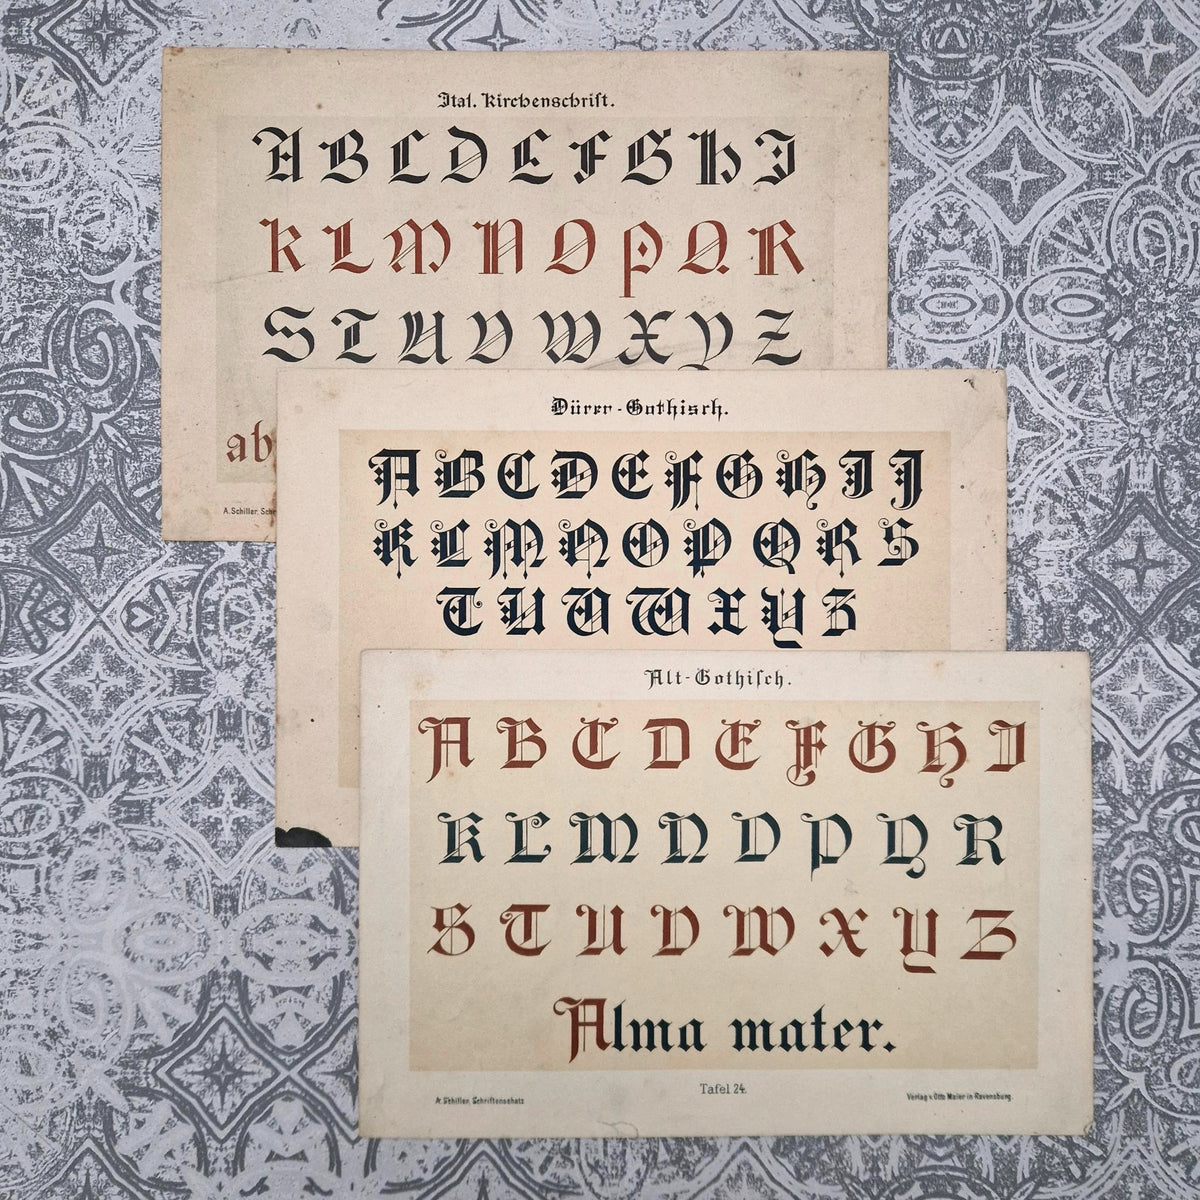 Ital. Kirchenschrift.
A B C D E F G H I
K L M N O P Q R
S T U V W X Y Z
ab
A. Schiller. Schr
Dürer-Gothisch.
A B C D E F G H I J
K L M N O P Q R S
T U V W X Y Z
Alt-Gothiſch.
A B C D E F G H I
K L M N O P Q R
S T U V W X Y Z
Alma mater.
Tafel 24.
A. Schiller, Schriftenschatz
Verlag v. Otto Maier in Ravensburg.